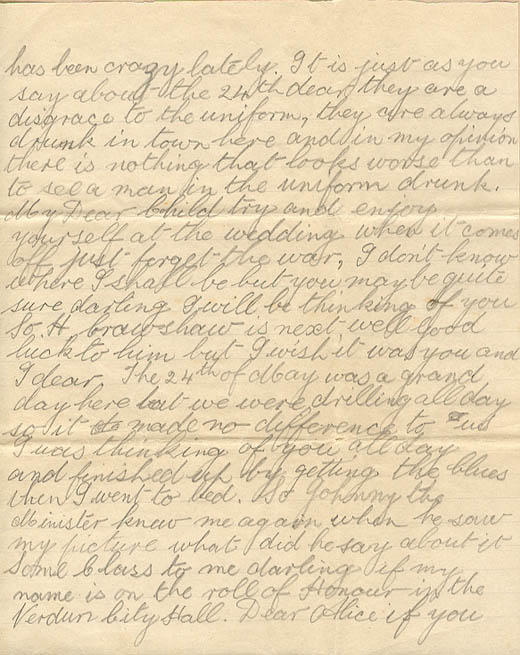 has been crazy lately. It is just as you
say about the 24th dear, they are a
disgrace to the uniform, they are always
drunk in town here and in my opinion
there is nothing that looks worse than
to see a man in the uniform drunk.
My Dear Child try and enjoy
yourself at the wedding when it comes
off just forget the war, I don't know
where I shall be but you may be quite
sure darling I will be thinking of you
So H. brawshaw is next well good
luck to him but I wish it was you and
I dear. The 24th of May was a grand
day here but we were drilling all day
so it made no difference to us
I was thinking of you all day
and finished up by getting the blues
when I went to bed. So Johnny the
Minister knew me again when he saw
my picture what did he say about it
some Class to me darling if my
name is on the roll of Honour in the
Verdun City Hall. Dear Alice if you